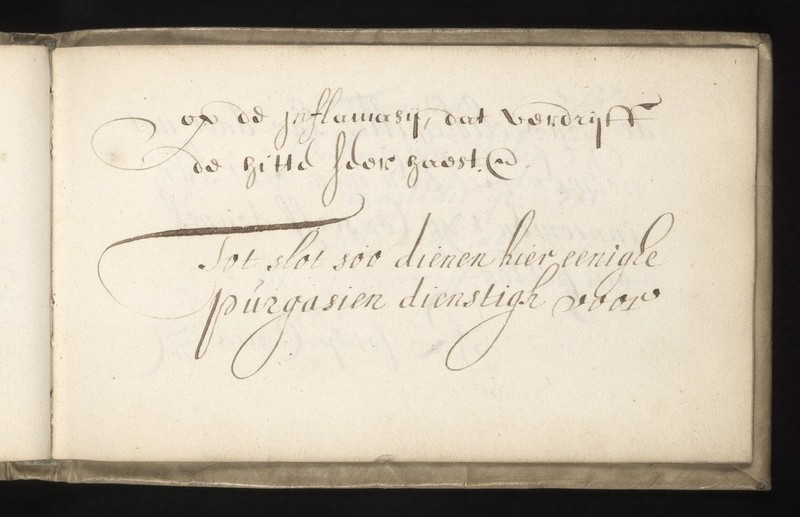 op de jnflamasij, dat verdrijft
de hitte seer haest.
Tot slot soo dienen hier eenighe
pùrgasien dienstigh voor